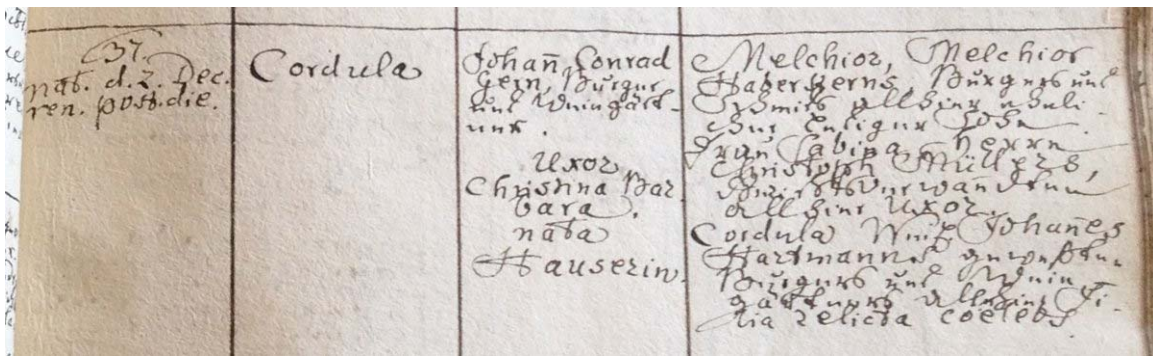 37.
nat. d. 2. Dec.
ren. post. die.
Cordula
Johañ Conrad
Gern, Burger
und Weingärt-
ner.
Uxor
Christina Bar
bara.
nata
Hauserin.
Melchior, Melchior
Burgers und
Schmids allhier eheli-
cher lediger Sohn
Frau Sabina Herrn
Christoph Müllers,
Gerichtsverwandten
allhier Uxor.
Cordula Weil. Johañes
Hartmanns gewesten
Burgers und Wein-
gärtners allhier Fi-
lia relicta coelebs.